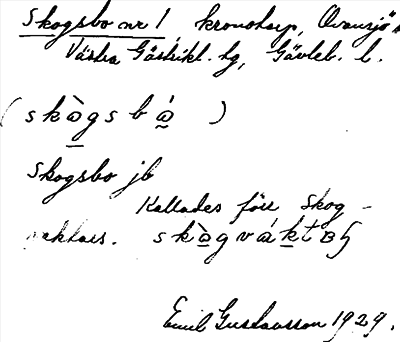 Skogsbo nr 1, kronotorp, Ovansjö
Västra Gästrikl. hg, Gävleb. l.
(skògsbó)
Skogsbo jb
Kallades förr Skog-
vaktars. skògváktaʂ
Emil Gustavsson 1929.